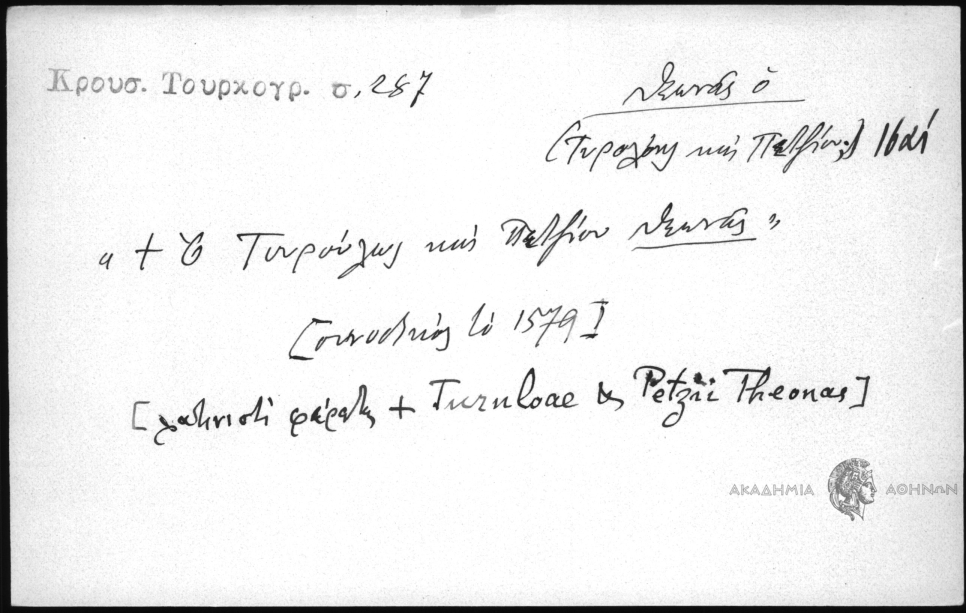 Κρουσ. Τουρκογρ. σ. 287
Θεωνάς ὁ
(Τυρολόης καὶ Πετζίου;) 16 αἰ
" + Ὁ Τουρούλωης καὶ Πετζίου Θεωνᾶς "
[συνοδικὸς τὸ 1579]
[λατινιστὶ φέρεται + Turnloae & Petzii Theonas]
ΑΚΑΔΗΜΙΑ ΑΘΗΝΩΝ